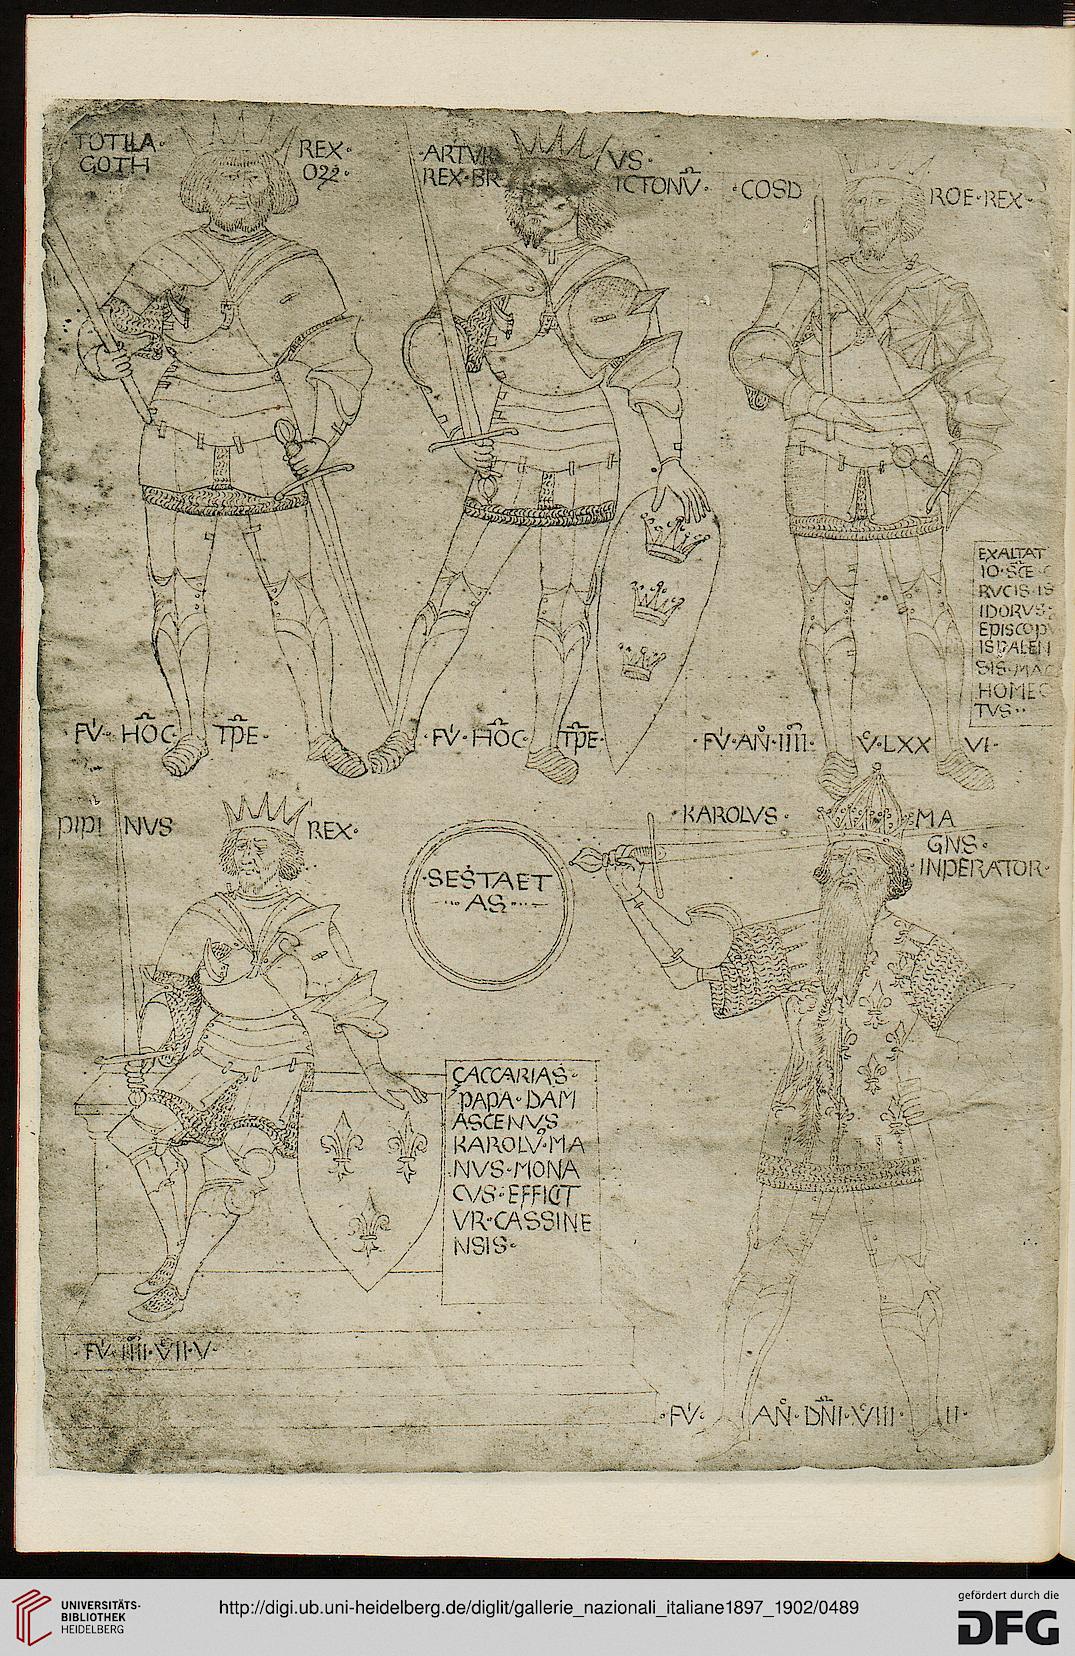 TOTILA· REX·
GOTH OƵƵ·
·ARTVR VS·
REX·BR ICTONV̄·
·COSD ROE·REX·
EXALTAT
IO·SC̄E·C
RVCIS·IS
IDORVS·
EPISCOP
ISPALEN
SIS·MAC
HOMEC
TVS··
·FV́·HŌC· TP̄E·
·FV́·HŌC· TP̄E·
·FV́·AN̊·IIII· V·LXX VI·
PIPI NVS REX·
·SESTAET
AS
·KAROLVS· MA
GNS·
·INPERATOR·
ÇACCARIAS·
PAPA·DAM
ASCENVS
KAROLV̊·MA
NVS·MONA
CVS·EFFICT
VR·CASSINE
NSIS·
·FV́·IIII·VII·V·
·FV́· AN̊·DN̄I·VIII· II·
UNIVERSITÄTS-
BIBLIOTHEK
HEIDELBERG
http://digi.ub.uni-heidelberg.de/diglit/gallerie_nazionali_italiane1897_1902/0489
gefördert durch die
DFG